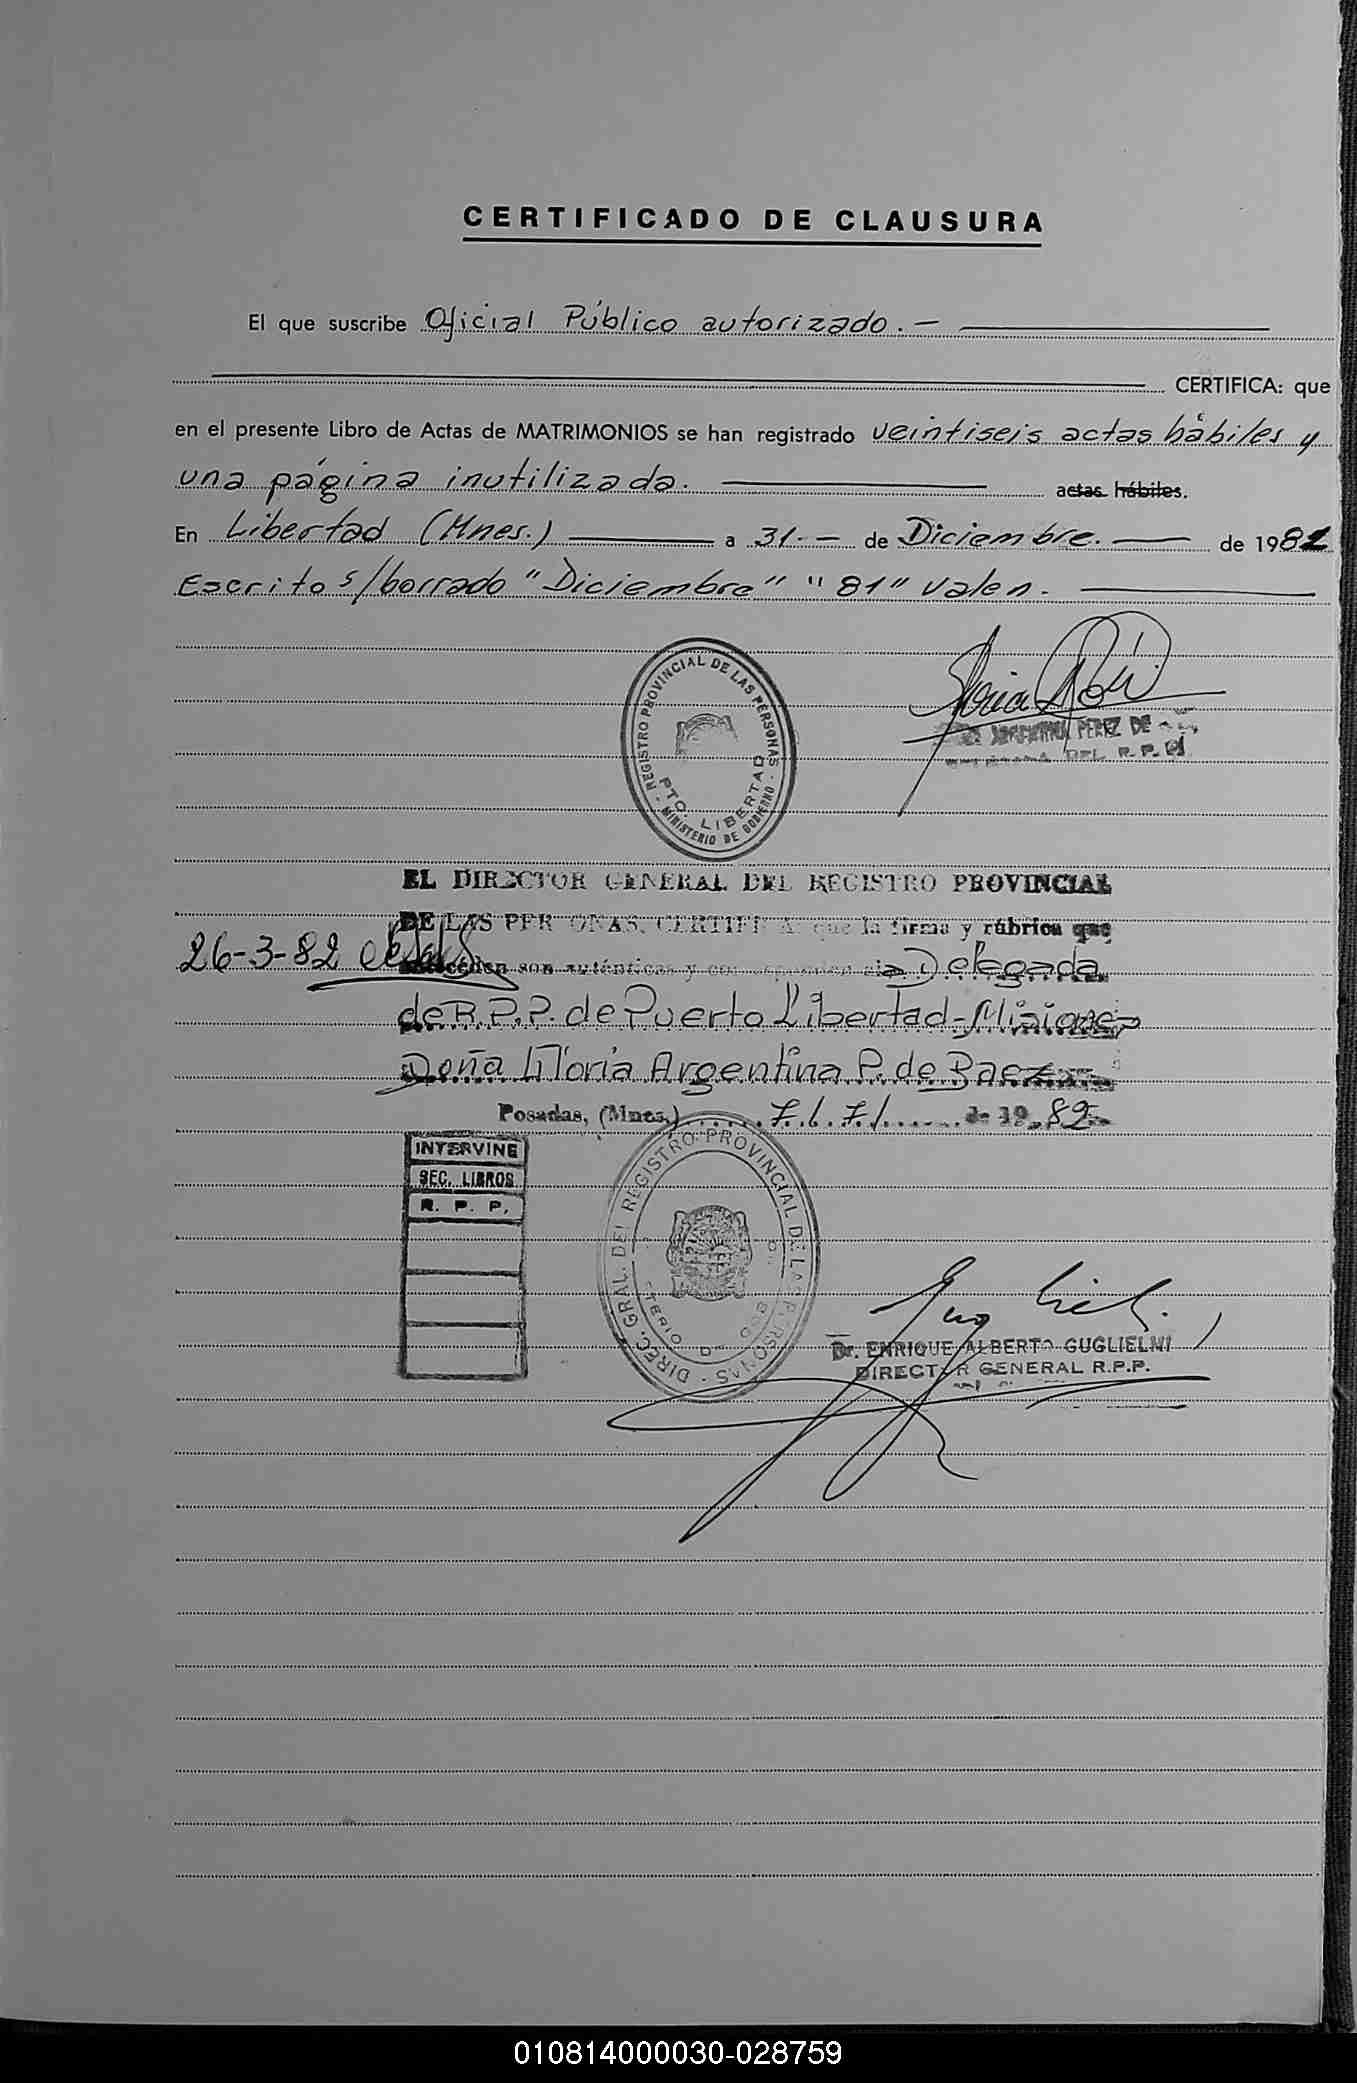 CERTIFICADO DE CLAUSURA
El que suscribe Oficial Público autorizado. —
CERTIFICA: que
en el presente Libro de Actas de MATRIMONIOS se han registrado veintiseis actas hábiles y
una página inutilizada. actas hábiles.
En Libertad (Mnes.) a 31.- de Diciembre. de 1981
Escrito s/borrado "Diciembre" "81" Valen.
REGISTRO PROVINCIAL DE LAS PERSONAS
PTO. LIBERTAD
MINISTERIO DE GOBIERNO
ARGENTINA PEREZ DE
DEL R. P. P.
EL DIRECTOR GENERAL DEL REGISTRO PROVINCIAL
DE LAS PERSONAS, CERTIFICA: que la firma y rúbrica que
26-3-82
anteceden son auténticas y corresponden a la Delegada
de R.P.P. de Puerto Libertad-Misiones
Doña Gloria Argentina P. de Baez
Posadas, (Mnes.) de 1982.-
INTERVINE
SEC. LIBROS
R. P. P.
DIREC. GRAL. DEL REGISTRO PROVINCIAL DE LAS PERSONAS
Dr. ENRIQUE ALBERTO GUGLIELMI
DIRECTOR GENERAL R.P.P.
010814000030-028759